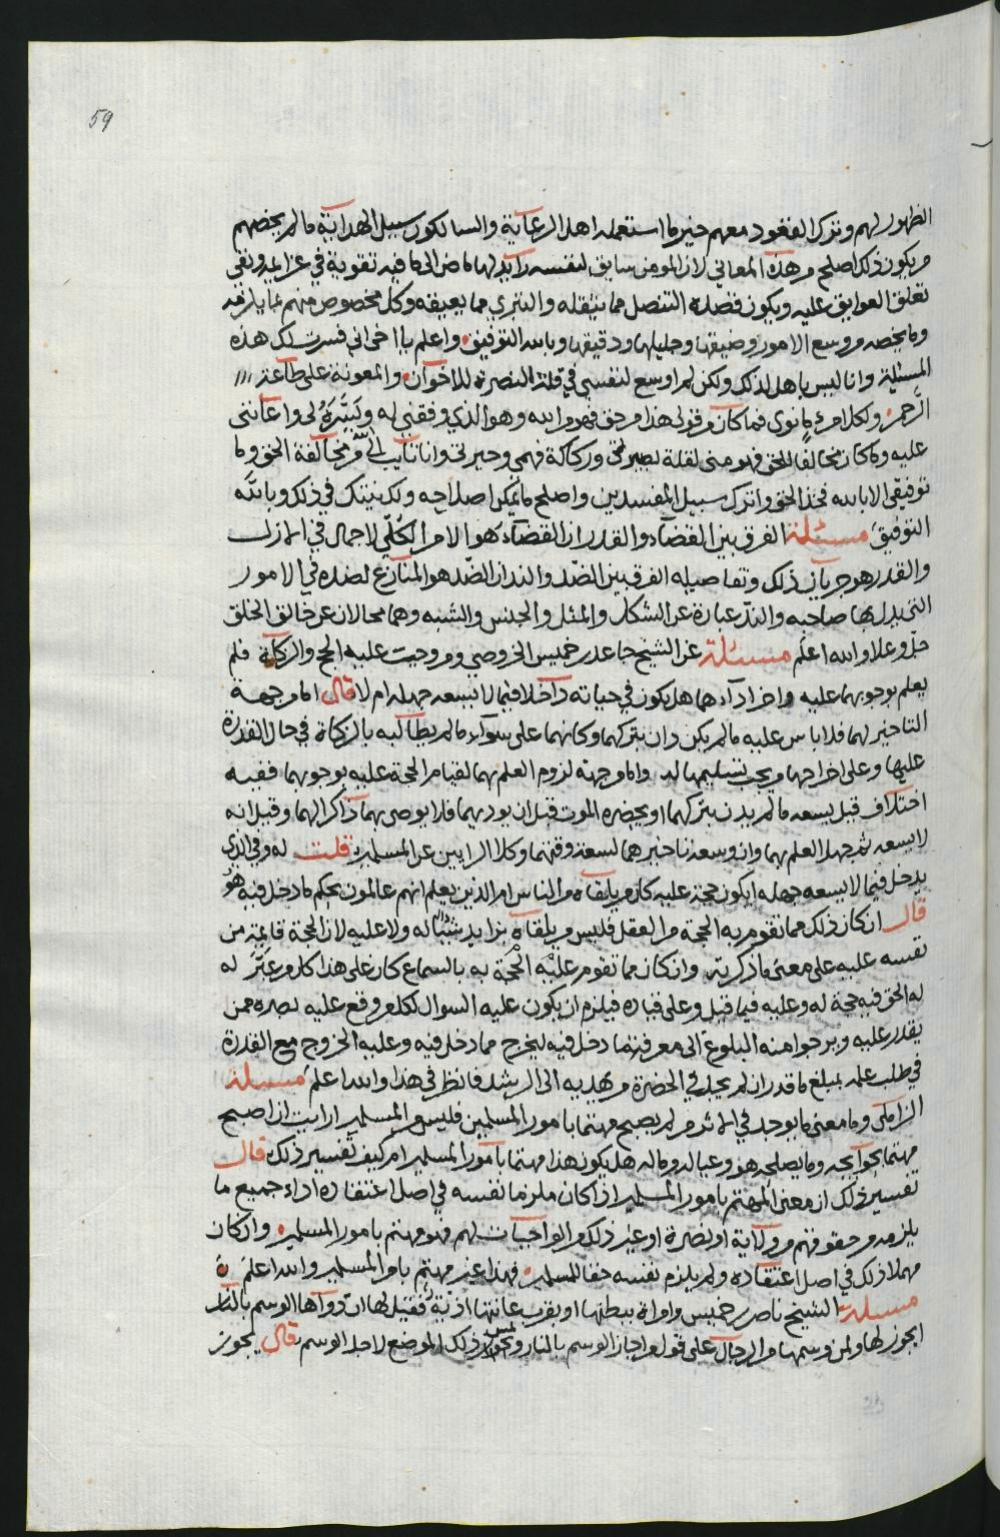 59
الظهور لهم وترك القعود معهم خير ما استعمله اهل الرعاية والسالكون سبيل الهداية ما لم يخصهم
ويكون ذلك اصلح من هذه المعاني لان المومن سايق لنفسه رايد لها ماض الى ما فيه تقوية في عزايمه ونفي
تعلق العوايق عليه ويكون فضله التنصل مما يثقله والتبري مما يعيقه وكل مخصوص منهم بما يلزمه
وما يخصه من وسع الامور وضيقها وجليلها ودقيقها وبالله التوفيق واعلم يا اخي اني فسرت لك هذه
المسئلة وانا ليس باهل لذلك ولكن لم اوسع لنفسي في قلة النصرة للاخوان والمعونة على طاعة
الرحمن ولكل امرئ ما نوى فما كان من قولي هذا من حق فهو من الله وهو الذي وفقني له ويسره لي واعانني
عليه وما كان مخالفا للحق فهو مني لقلة بصيرتي وركاكة فهمي وحيرتي وانا تايب الى الله من مخالفة الحق وما
توفيقي الا بالله فخذ الحق واترك سبيل المفسدين واصلح ما يمكن اصلاحه ولك نيتك في ذلك وبالله
التوفيق مسئلة الفرق بين القضاء والقدر ان القضاء هو الامر الكلي الاجمال في الازل
والقدر هو جريان ذلك وتفاصيله الفرق بين الضد والند ان الضد هو المنازع لضده في الامور
التي يدل بها صاحبه والند عبارة عن الشكل والمثل والجنس والشبه وهما محالان عن خالق الخلق
جل وعلا والله اعلم مسئلة عن الشيخ جاعد بن خميس الخروصي ومن وجبت عليه الحج والزكاة فلم
يعلم بوجوبهما عليه واخر اداءهما هل يكون في حياته داخلا فيما لا يسعه جهله ام لا قال اما من جهة
التاخير لهما فلا باس عليه ما لم يكن دان بتركهما وكانهما على سواء ما لم يطالبه بالزكاة في حال القدرة
عليها وعلى اخراجها من يجب تسليمها له واما من جهة لزوم العلم بهما لقيام الحجة عليه بوجوبهما ففيه
اختلاف قيل يسعه ما لم يدن بتركهما او يحضره الموت قبل ان يوديهما فلا يوصي بهما ذاكرا لهما وقيل انه
لا يسعه ثم جهل العلم بهما وان وسعه تاخيرهما لسعة وقتهما وكلا الرايين عن المسلمين قلت له وفي الذي
يدخل فيما لا يسعه جهله ايكون حجة عليه كل من يلقاه من الناس ام الذين يعلم انهم عالمون بحكم ما دخل فيه هو
قال ان كان ذلك مما تقوم به الحجة من العقل فليس من يلقاه بزايد شيئا له ولا عليه لان الحجة قايمة من
نفسه عليه على معنى ما ذكرته وان كان مما تقوم عليه الحجة به بالسماع كان على هذا كل من عبر له
له الحق فيه حجة له وعليه فيما قيل وعلى قياده فيلزم ان يكون عليه السوال لكل من وقع عليه بصره ممن
يقدر عليه ويرجوا منه البلوغ الى معرفة ما دخل فيه ليخرج مما دخل فيه وعليه الخروج مع القدرة
في طلب علمه بمبلغ ما قدر ان لم يجد في الحضرة من يهديه الى الرشد فانظر في هذا والله اعلم مسئلة
الزاملي وما معنى ما يوجد في الاثر من لم يصبح مهتما بامور المسلمين فليس من المسلمين ارايت ان اصبح
مهتما بحوايجه وما يصلحه هو وعياله وماله هل يكون هذا مهتما بامور المسلمين ام كيف تفسير ذلك قال
تفسير ذلك ان معنى المهتم بامور المسلمين اذا كان ملزما نفسه في اصل اعتقاده اداء جميع ما
يلزمه من حقوقهم من ولاية او نصرة او غير ذلك من الواجبات لهم فهو مهتم بامور المسلمين وان كان
مهملا ذلك في اصل اعتقاده ولم يلزم نفسه حقا للمسلمين فهذا غير مهتم بامر المسلمين والله اعلم
مسئلة الشيخ ناصر بن خميس وامراة ببطنها او بقرب عانتها اذية فقيل لها ان دواها الوسم بالنار
ايجوز لها ولمن وسمها من الرجال على قول من اجاز الوسم بالنار ويجوز لمس ذلك الموضع لاجل الوسم قال يجوز